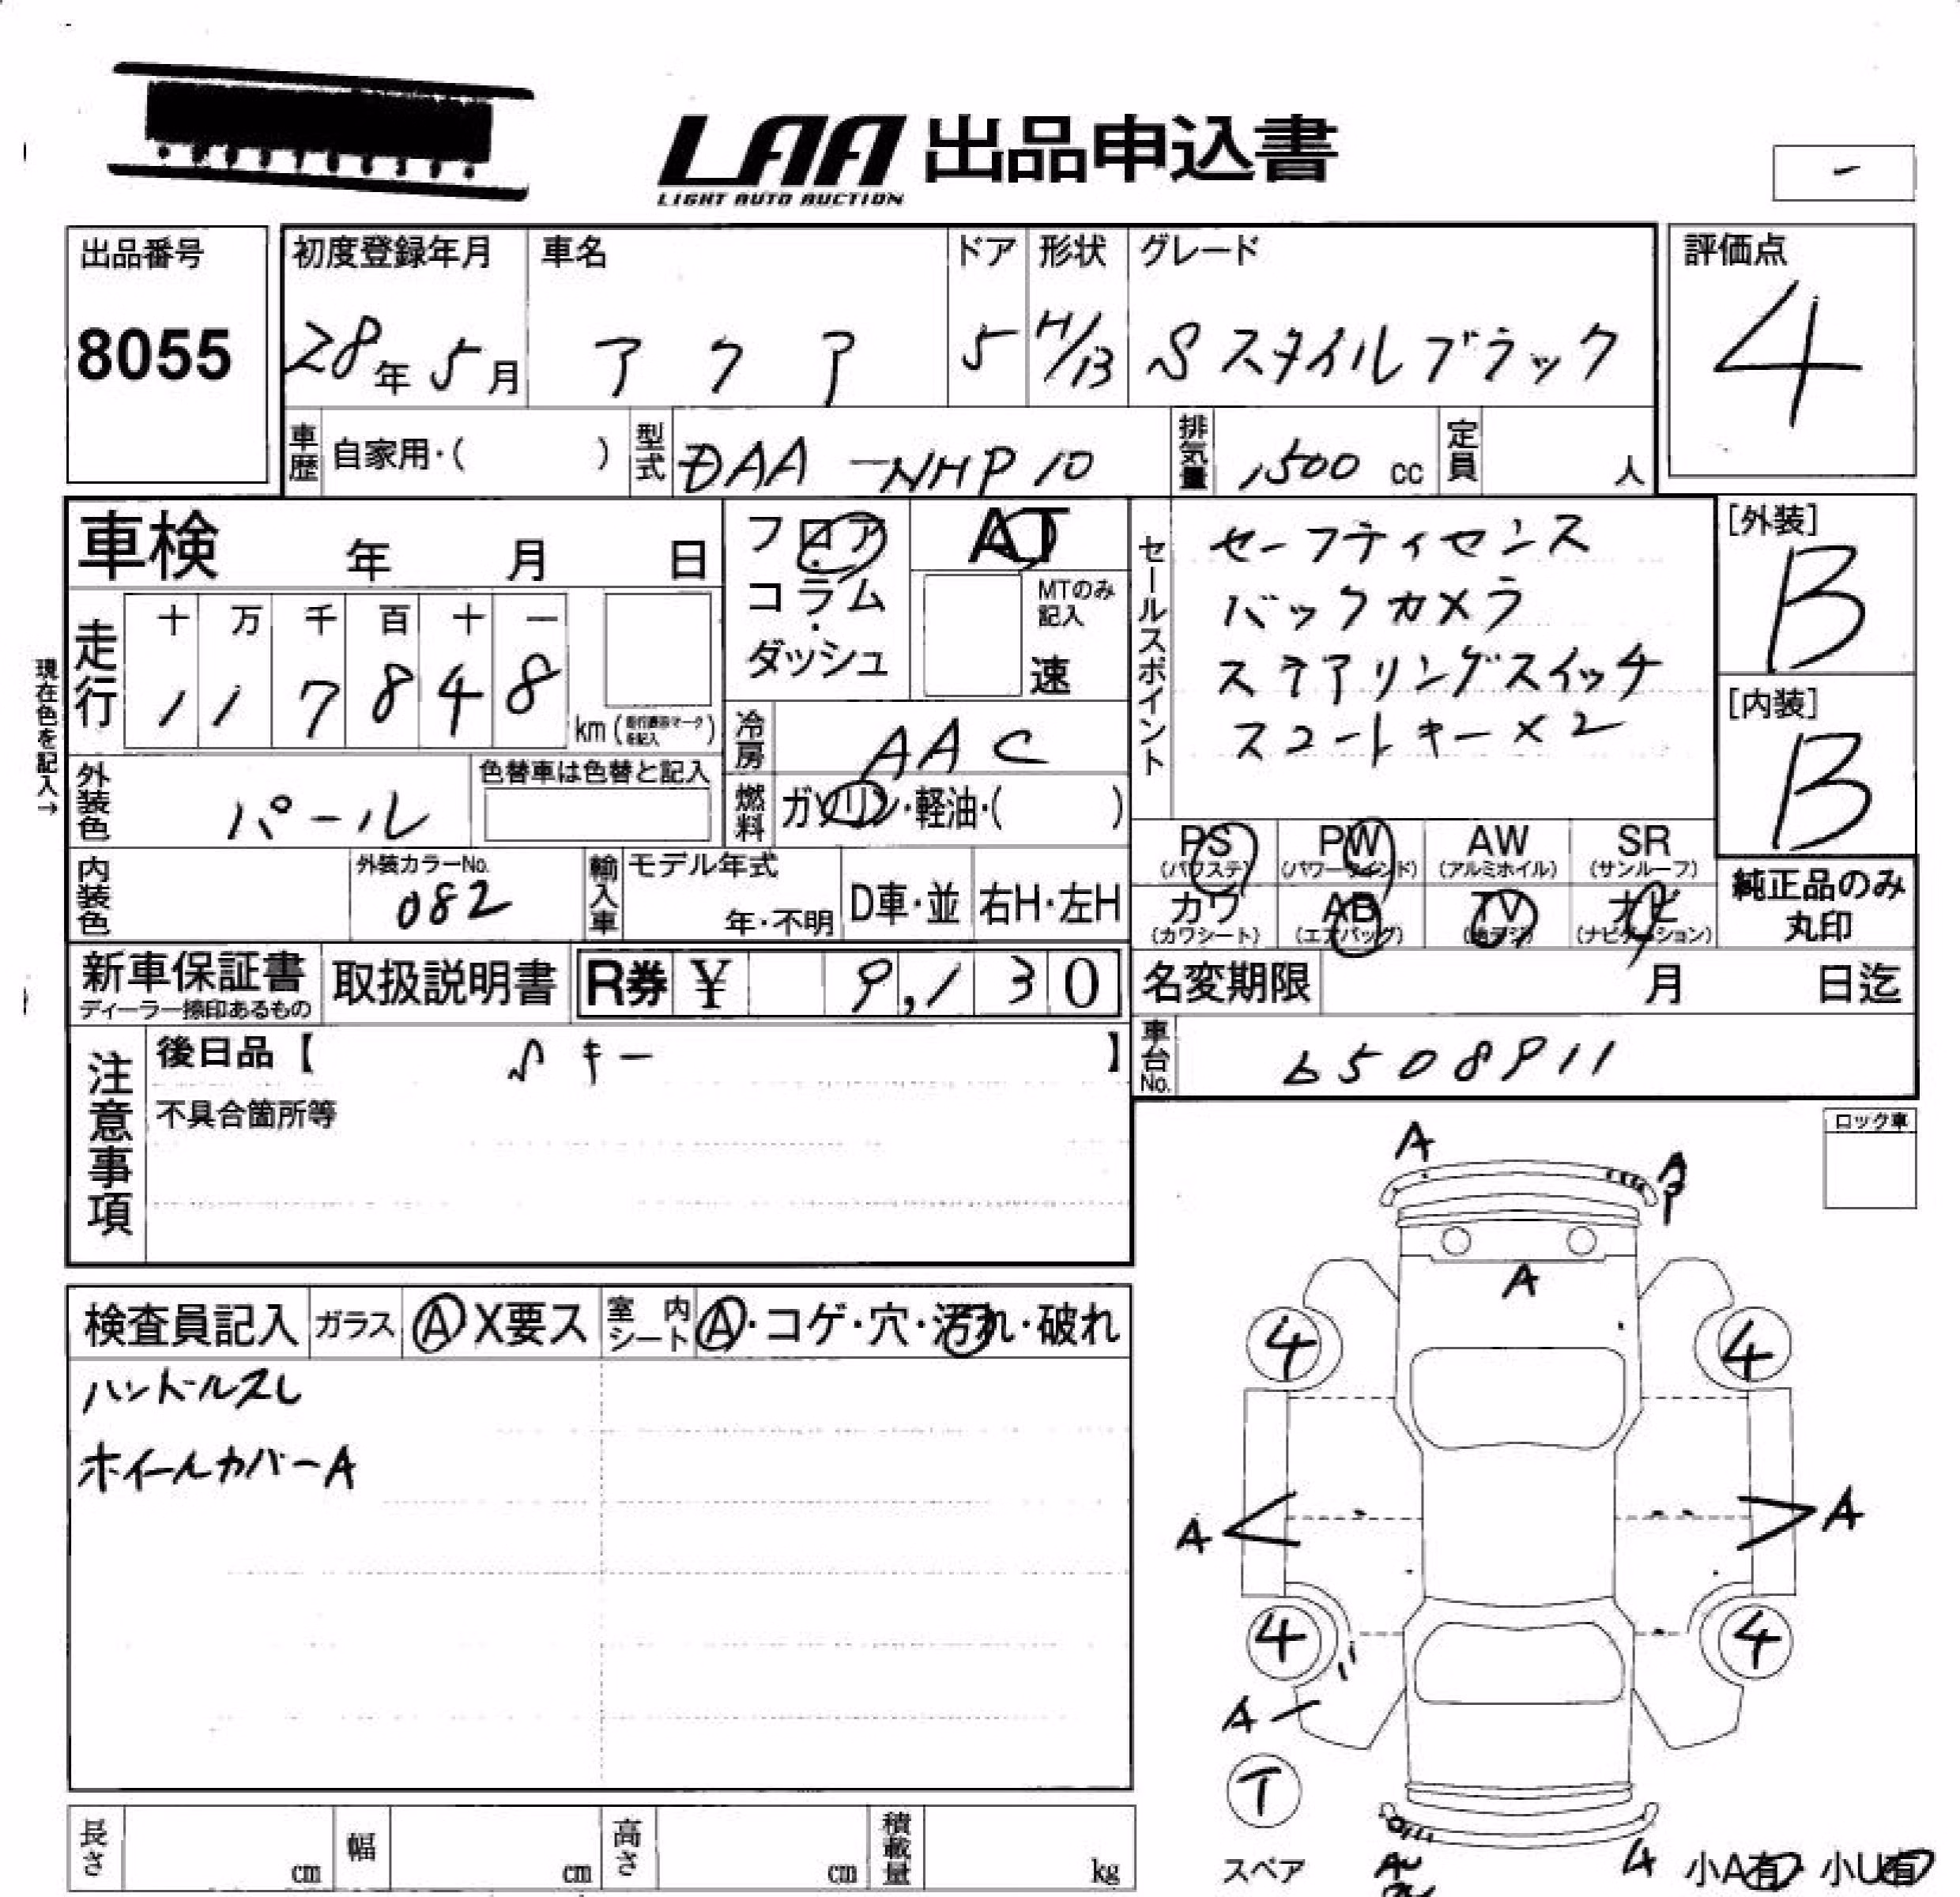 LAA 出品申込書
LIGHT AUTO AUCTION
出品番号
8055
初度登録年月
28年5月
車名
アクア
ドア
5
形状
H/B
グレード
Sスタイルブラック
評価点
4
車歴
自家用・( )
型式
DAA-NHP10
排気量
1500 cc
定員
人
車検 年 月 日
フロア・
コラム・
ダッシュ
AT
MTのみ記入
速
セールスポイント
セーフティセンス
バックカメラ
ステアリングスイッチ
スマートキー×2
[外装]
B
[内装]
B
現在色を記入→
走行
十 万 千 百 十 一
1 1 7 8 4 8
km
冷房
AAC
燃料
ガソリン・軽油・( )
外装色
パール
色替車は色替と記入
内装色
外装カラーNo.
082
輸入車
モデル年式
年・不明
D車・並
右H・左H
PS (パワステ)
PW (パワーウインド)
AW (アルミホイル)
SR (サンルーフ)
カワ (カワシート)
AB (エアバッグ)
TV (地デジ)
ナビ (ナビゲーション)
純正品のみ丸印
新車保証書
ディーラー捺印あるもの
取扱説明書
R券 ¥ 9,130
名変期限 月 日迄
車台No.
6508911
注意事項
後日品【 Sキー 】
不具合箇所等
ロック車
検査員記入
ガラス
A X要ス
室内シート
A・コゲ・穴・汚れ・破れ
ハンドルスレ
ホイールカバーA
A
A
A
4
4
A
A
4
4
A
T
スペア
4
小A有・小U有
長さ cm
幅 cm
高さ cm
積載量 kg